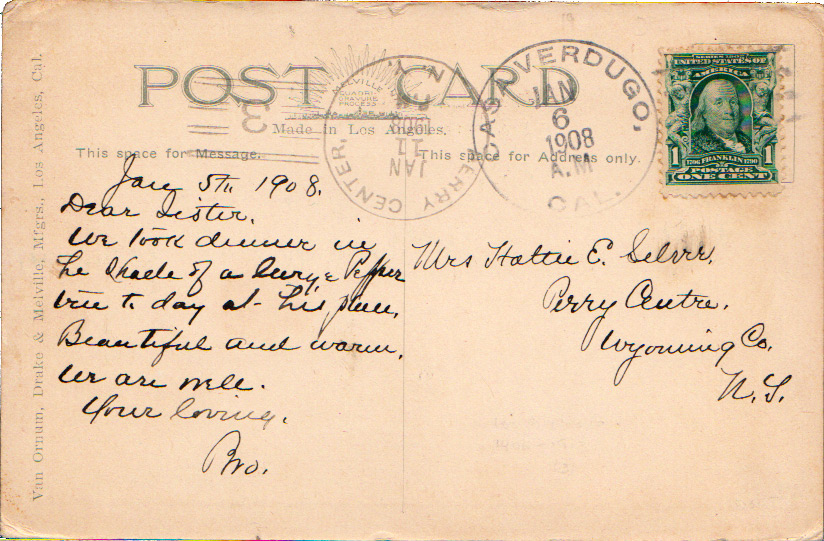 POST CARD
MELVILLE
QUADRI
GRAVURE
PROCESS
Made in Los Angeles.
This space for Message.
This space for Address only.
Van Ornum, Drake & Melville, Mfgrs., Los Angeles, Cal.
PERRY CENTER, N.Y.
JAN
11
1908
CASA VERDUGO, CAL.
JAN
6
1908
A.M
SERIES 1902
UNITED STATES OF
AMERICA
1 1706 FRANKLIN 1790 1
POSTAGE
ONE CENT
Jan 5th 1908.
Dear Sister.
We took dinner in
the Shade of a large Pepper
tree to day at this place.
Beautiful and warm.
We are well.
Your loving.
Bro.
Mrs Hattie E.
Perry Centre.
Wyoming Co.
N.Y.